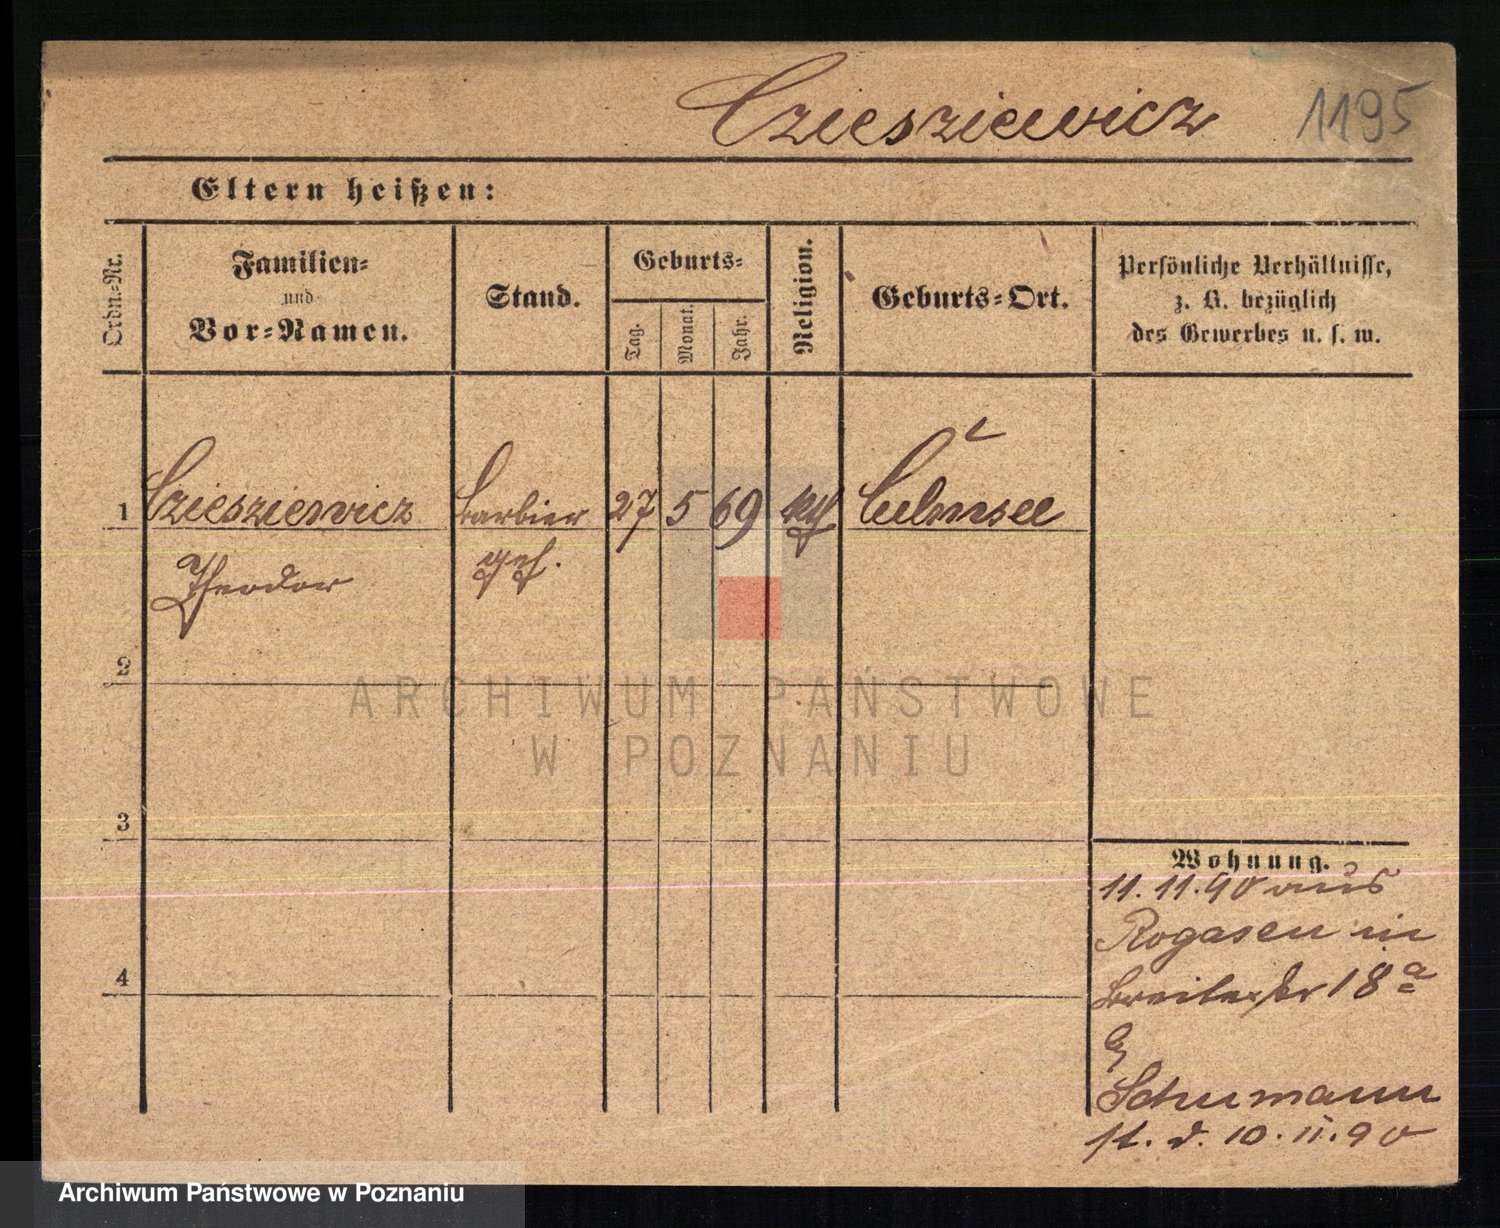 Cziesziewicz 1195
Eltern heißen:
Ordn.-Nr.
Familien-
und
Vor-Namen.
Stand.
Geburts-
Tag.
Monat.
Jahr.
Religion.
Geburts-Ort.
Persönliche Verhältnisse,
z. B. bezüglich
des Gewerbes u. s. w.
1 Czieszienwicz Barbier 27 5 69 kth Culmsee
Theodor geh.
2
ARCHIWUM PAŃSTWOWE
W POZNANIU
3
Wohnung.
11.11.90 aus
Rogasen in
4
Breitestr 18a
Schumann
st. d. 10.11.90
Archiwum Państwowe w Poznaniu